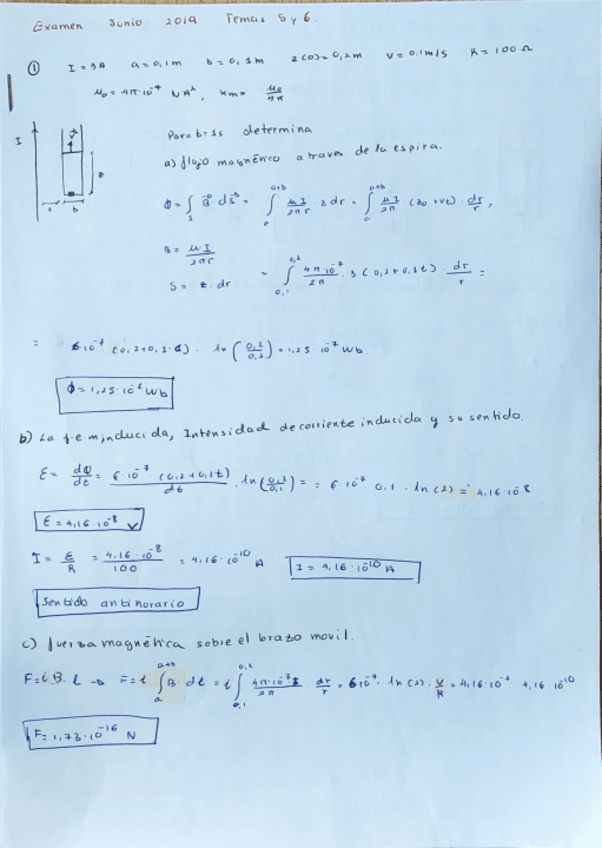 Examen Junio 2019 Temas 5 y 6.
① I = 3A a = 0,1m b = 0,1m z(0) = 0,2m v = 0,1m/s R = 100 Ω
μ₀ = 4π·10⁻⁷ N A², km = μ₀/4π
I
Para t = 1s determina
a) flujo magnético a traves de la espira.
a b
ϕ = ∫ B · dS = ∫ μI/2πr · z dr = ∫ μI/2π (z₀ + vt) · dr/r =
B = μI/2πr
S = z · dr
= ∫ 4π 10⁻⁷/2π · 3 (0,2 + 0,1t) · dr/r =
= 6·10⁻⁷ (0,2+0,1·1) · ln (0,2/0,1) = 1,25 · 10⁻⁷ Wb
ϕ = 1,25·10⁻⁷ Wb
b) La f.e.m inducida, Intensidad de corriente inducida y su sentido.
ε = dϕ/dt = 6·10⁻⁷ · (0,2+0,1t)/dt · ln (0,2/0,1) = = 6·10⁻⁷ · 0.1 · ln (2) = 4,16·10⁻⁸
ε = 4,16·10⁻⁸ V
I = ε/R = 4,16·10⁻⁸/100 = 4,16·10⁻¹⁰ A
I = 4,16·10⁻¹⁰ A
Sentido antihorario
c) fuerza magnética sobre el brazo movil.
F = i·B·l → F = i ∫ B · dl = i ∫ 4π·10⁻⁷·3/2π · dr/r = 6·10⁻⁷ · ln (2) · V/R = 4,16·10⁻⁷ · 4,16·10⁻¹⁰
F = 1,73·10⁻¹⁶ N